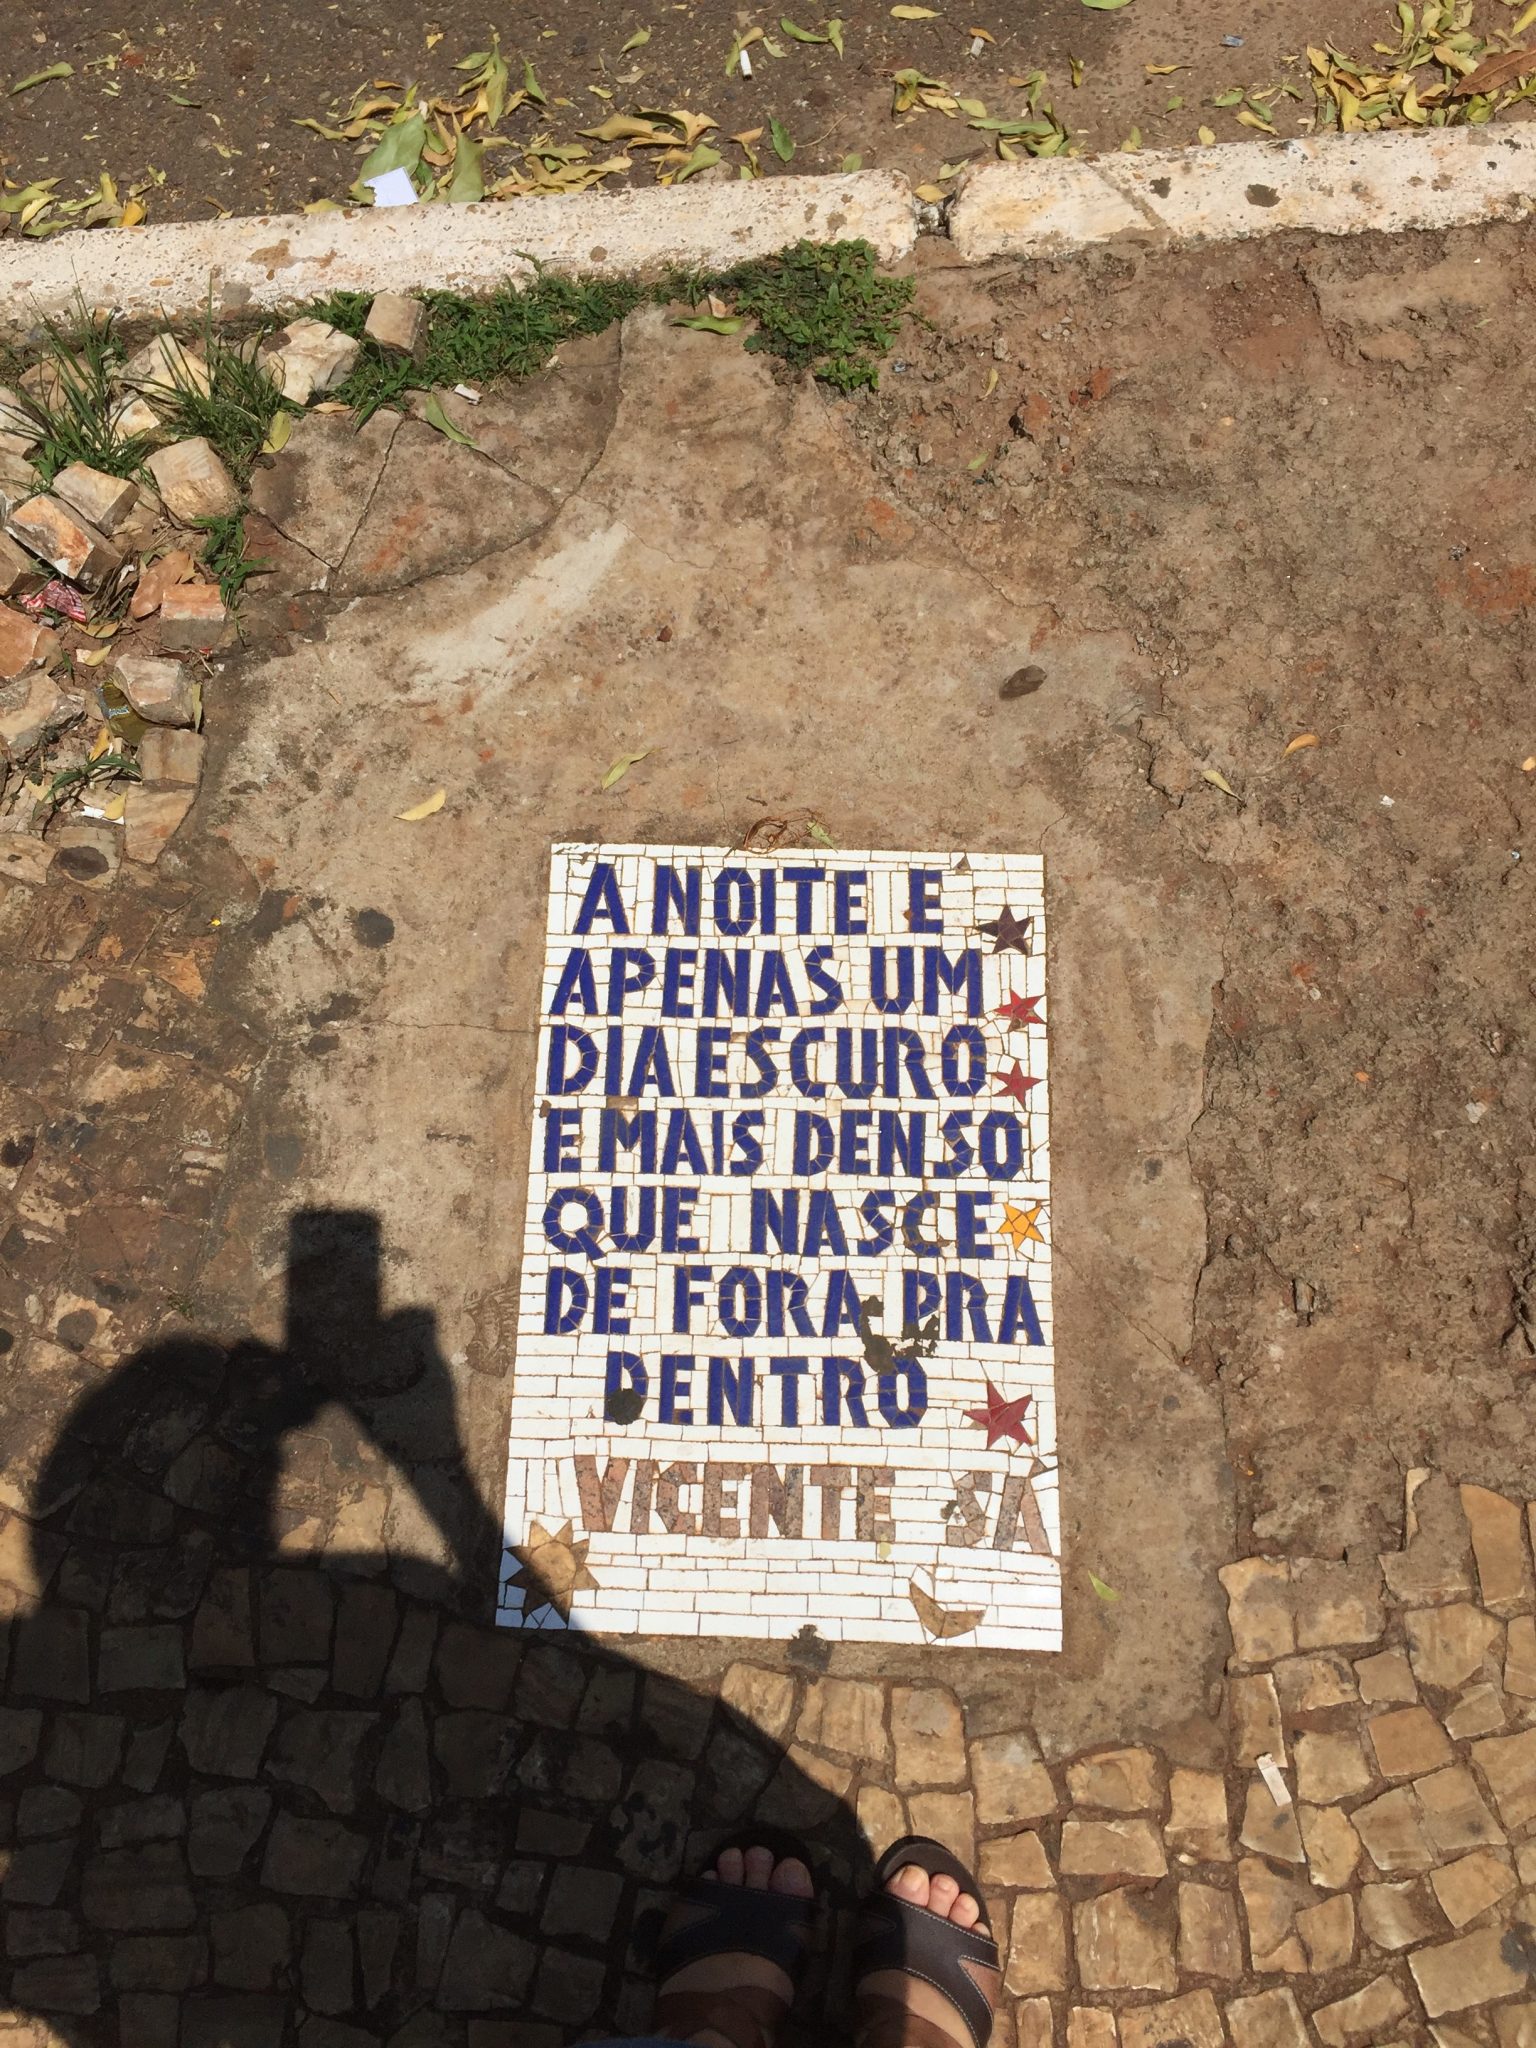 A NOITE E
APENAS UM
DIA ESCURO
E MAIS DENSO
QUE NASCE
DE FORA PRA
DENTRO
VICENTE SÁ